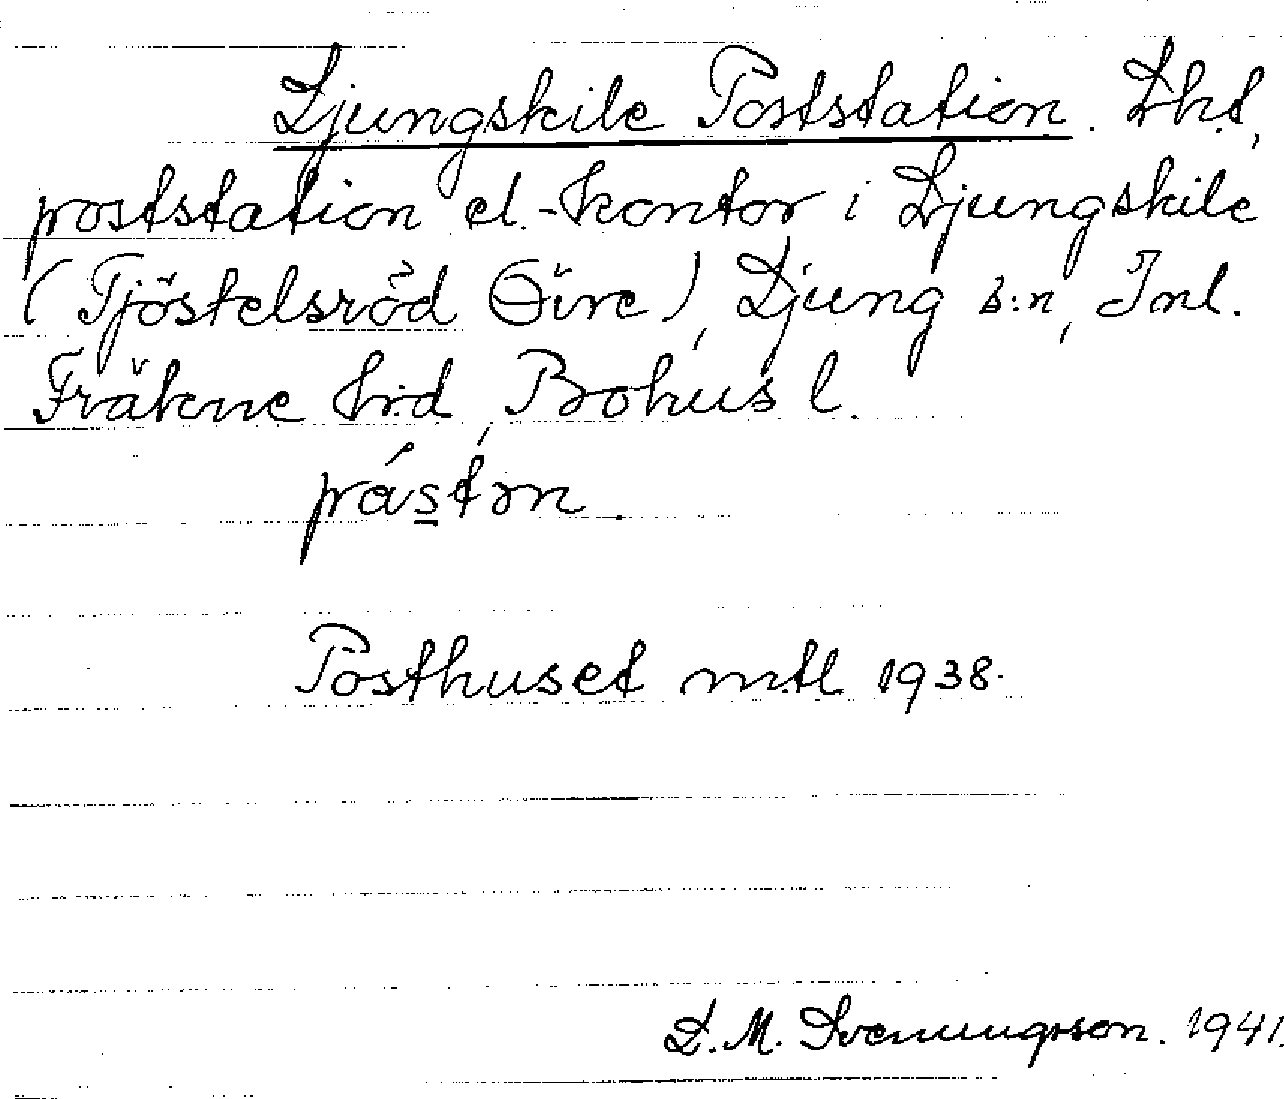 Ljungskile Poststation. Lht,
poststation el.-kontor i Ljungskile
(Tjöstelsröd Övre), Ljung s:n, Inl.
Fräkne hrd, Bohusl.
påstǝn.
Posthuset mtl 1938.
L. M. Svenungsson. 1941.